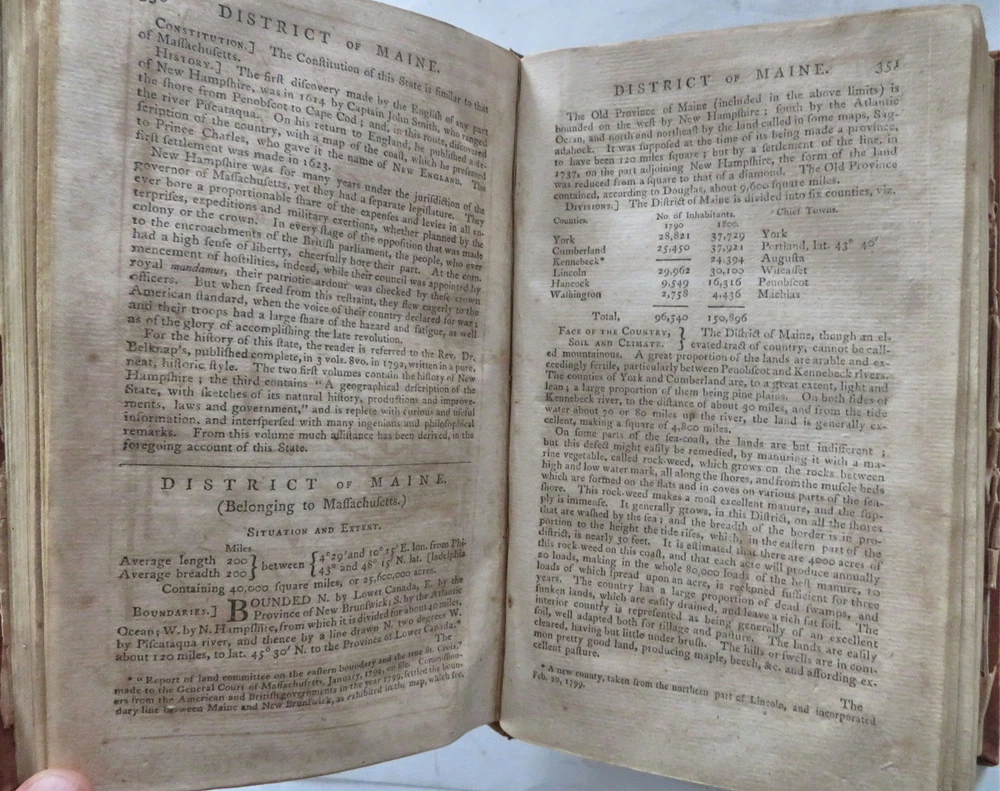 DISTRICT OF MAINE.
CONSTITUTION.] The Conſtitution of this State is ſimilar to that
of Maſſachuſetts.
HISTORY.] The firſt diſcovery made by the Engliſh of any part
of New Hampſhire, was in 1614 by Captain John Smith, who ranged
the ſhore from Penobſcot to Cape Cod; and, in this route, diſcovered
the river Piſcataqua. On his return to England, he publiſhed a de-
ſcription of the country, with a map of the coaſt, which he preſented
to Prince Charles, who gave it the name of NEW ENGLAND. The
firſt ſettlement was made in 1623.
New Hampſhire was for many years under the juriſdiction of the
governor of Maſſachuſetts, yet they had a ſeparate legiſlature. They
ever bore a proportionable ſhare of the expenſes and levies in all en-
terpriſes, expeditions and military exertions, whether planned by the
colony or the crown. In every ſtage of the oppoſition that was made
to the encroachments of the Britiſh parliament, the people, who ever
had a high ſenſe of liberty, cheerfully bore their part. At the com-
mencement of hoſtilities, indeed, while their council was appointed by
royal mandamus, their patriotic ardour was checked by theſe crown
officers. But when freed from this reſtraint, they flew eagerly to the
American ſtandard, when the voice of their country declared for war;
and their troops had a large ſhare of the hazard and fatigue, as well
as of the glory of accompliſhing the late revolution.
For the hiſtory of this ſtate, the reader is referred to the Rev. Dr.
Belknap's, publiſhed complete, in 3 vols. 8vo. in 1792, written in a pure,
neat, hiſtoric ſtyle. The two firſt volumes contain the hiſtory of New
Hampſhire; the third contains "A geographical deſcription of the
State, with ſketches of its natural hiſtory, productions and improve-
ments, laws and government," and is replete with curious and uſeful
information, and interſperſed with many ingenious and philoſophical
remarks. From this volume much aſſiſtance has been derived, in the
foregoing account of this State.
DISTRICT OF MAINE.
(Belonging to Maſſachuſetts.)
SITUATION AND EXTENT.
Miles.
Average length 200 } between { 4° 29' and 10° 15' E. lon. from Phi-
Average breadth 200 } { 43° and 48° 15' N. lat. [ladelphia
Containing 40,000 ſquare miles, or 25,600,000 acres.
BOUNDARIES.] BOUNDED N. by Lower Canada, E. by the
Province of New Brunſwick; S. by the Atlantic
Ocean; W. by N. Hampſhire, from which it is divided for about 40 miles,
by Piſcataqua river, and thence by a line drawn N. two degrees W.
about 120 miles, to lat. 45° 30' N. to the Province of Lower Canada.*
The
* "Report of land committee on the eaſtern boundary and the true St. Croix,"
made to the General Court of Maſſachuſetts, January, 1794, on file. Commiſſion-
ers from the American and Britiſh governments in the year 1799, ſettled the boun-
dary line between Maine and New Brunſwick, as exhibited in the map, which ſee.
DISTRICT OF MAINE. 351
The Old Province of Maine (included in the above limits) is
bounded on the weſt by New Hampſhire; ſouth by the Atlantic
Ocean, and north and northeaſt by the land called in ſome maps, Sag-
adahock. It was ſuppoſed at the time of its being made a province,
to have been 120 miles ſquare; but by a ſettlement of the line, in
1737, on the part adjoining New Hampſhire, the form of the land
was reduced from a ſquare to that of a diamond. The Old Province
contained, according to Douglas, about 9,600 ſquare miles.
DIVISIONS.] The Diſtrict of Maine is divided into ſix counties, viz.
Counties. No. of Inhabitants. Chief Towns.
1790 1800.
York 28,821 37,729 York
Cumberland 25,450 37,921 Portland, lat. 43° 40'
Kennebeck* —— 24,394 Auguſta
Lincoln 29,962 30,100 Wiſcaſſet
Hancock 9,549 16,316 Penobſcot
Waſhington 2,758 4,436 Machias
Total, 96,540 150,896
FACE OF THE COUNTRY, } The Diſtrict of Maine, though an el-
SOIL AND CLIMATE. } evated tract of country, cannot be call-
ed mountainous. A great proportion of the lands are arable and ex-
ceedingly fertile, particularly between Penobſcot and Kennebeck rivers.
The counties of York and Cumberland are, to a great extent, light and
lean; a large proportion of them being pine plains. On both ſides of
Kennebeck river, to the diſtance of about 30 miles, and from the tide
water about 70 or 80 miles up the river, the land is generally ex-
cellent, making a ſquare of 4,800 miles.
On ſome parts of the ſea-coaſt, the lands are but indifferent;
but this defect might eaſily be remedied, by manuring it with a ma-
rine vegetable, called rock-weed, which grows on the rocks between
high and low water mark, all along the ſhores, and from the muſcle beds
which are formed on the flats and in coves on various parts of the ſea-
ſhore. This rock-weed makes a moſt excellent manure, and the ſup-
ply is immenſe. It generally grows, in this Diſtrict, on all the ſhores
that are waſhed by the ſea; and the breadth of the border is in pro-
portion to the height the tide riſes, which, in the eaſtern part of the
diſtrict, is nearly 30 feet. It is eſtimated that there are 4000 acres of
this rock weed on this coaſt, and that each acre will produce annually
20 loads, making in the whole 80,000 loads of the beſt manure, 10
loads of which ſpread upon an acre, is reckoned ſufficient for three
years. The country has a large proportion of dead ſwamps, and
ſunken lands, which are eaſily drained, and leave a rich fat ſoil. The
interior country is repreſented as being generally of an excellent
ſoil, well adapted both for tillage and paſture. The lands are eaſily
cleared, having but little under bruſh. The hills or ſwells are in com-
mon pretty good land, producing maple, beech, &c. and affording ex-
cellent paſture.
The
* A new county, taken from the northern part of Lincoln, and incorporated
Feb. 20, 1799.